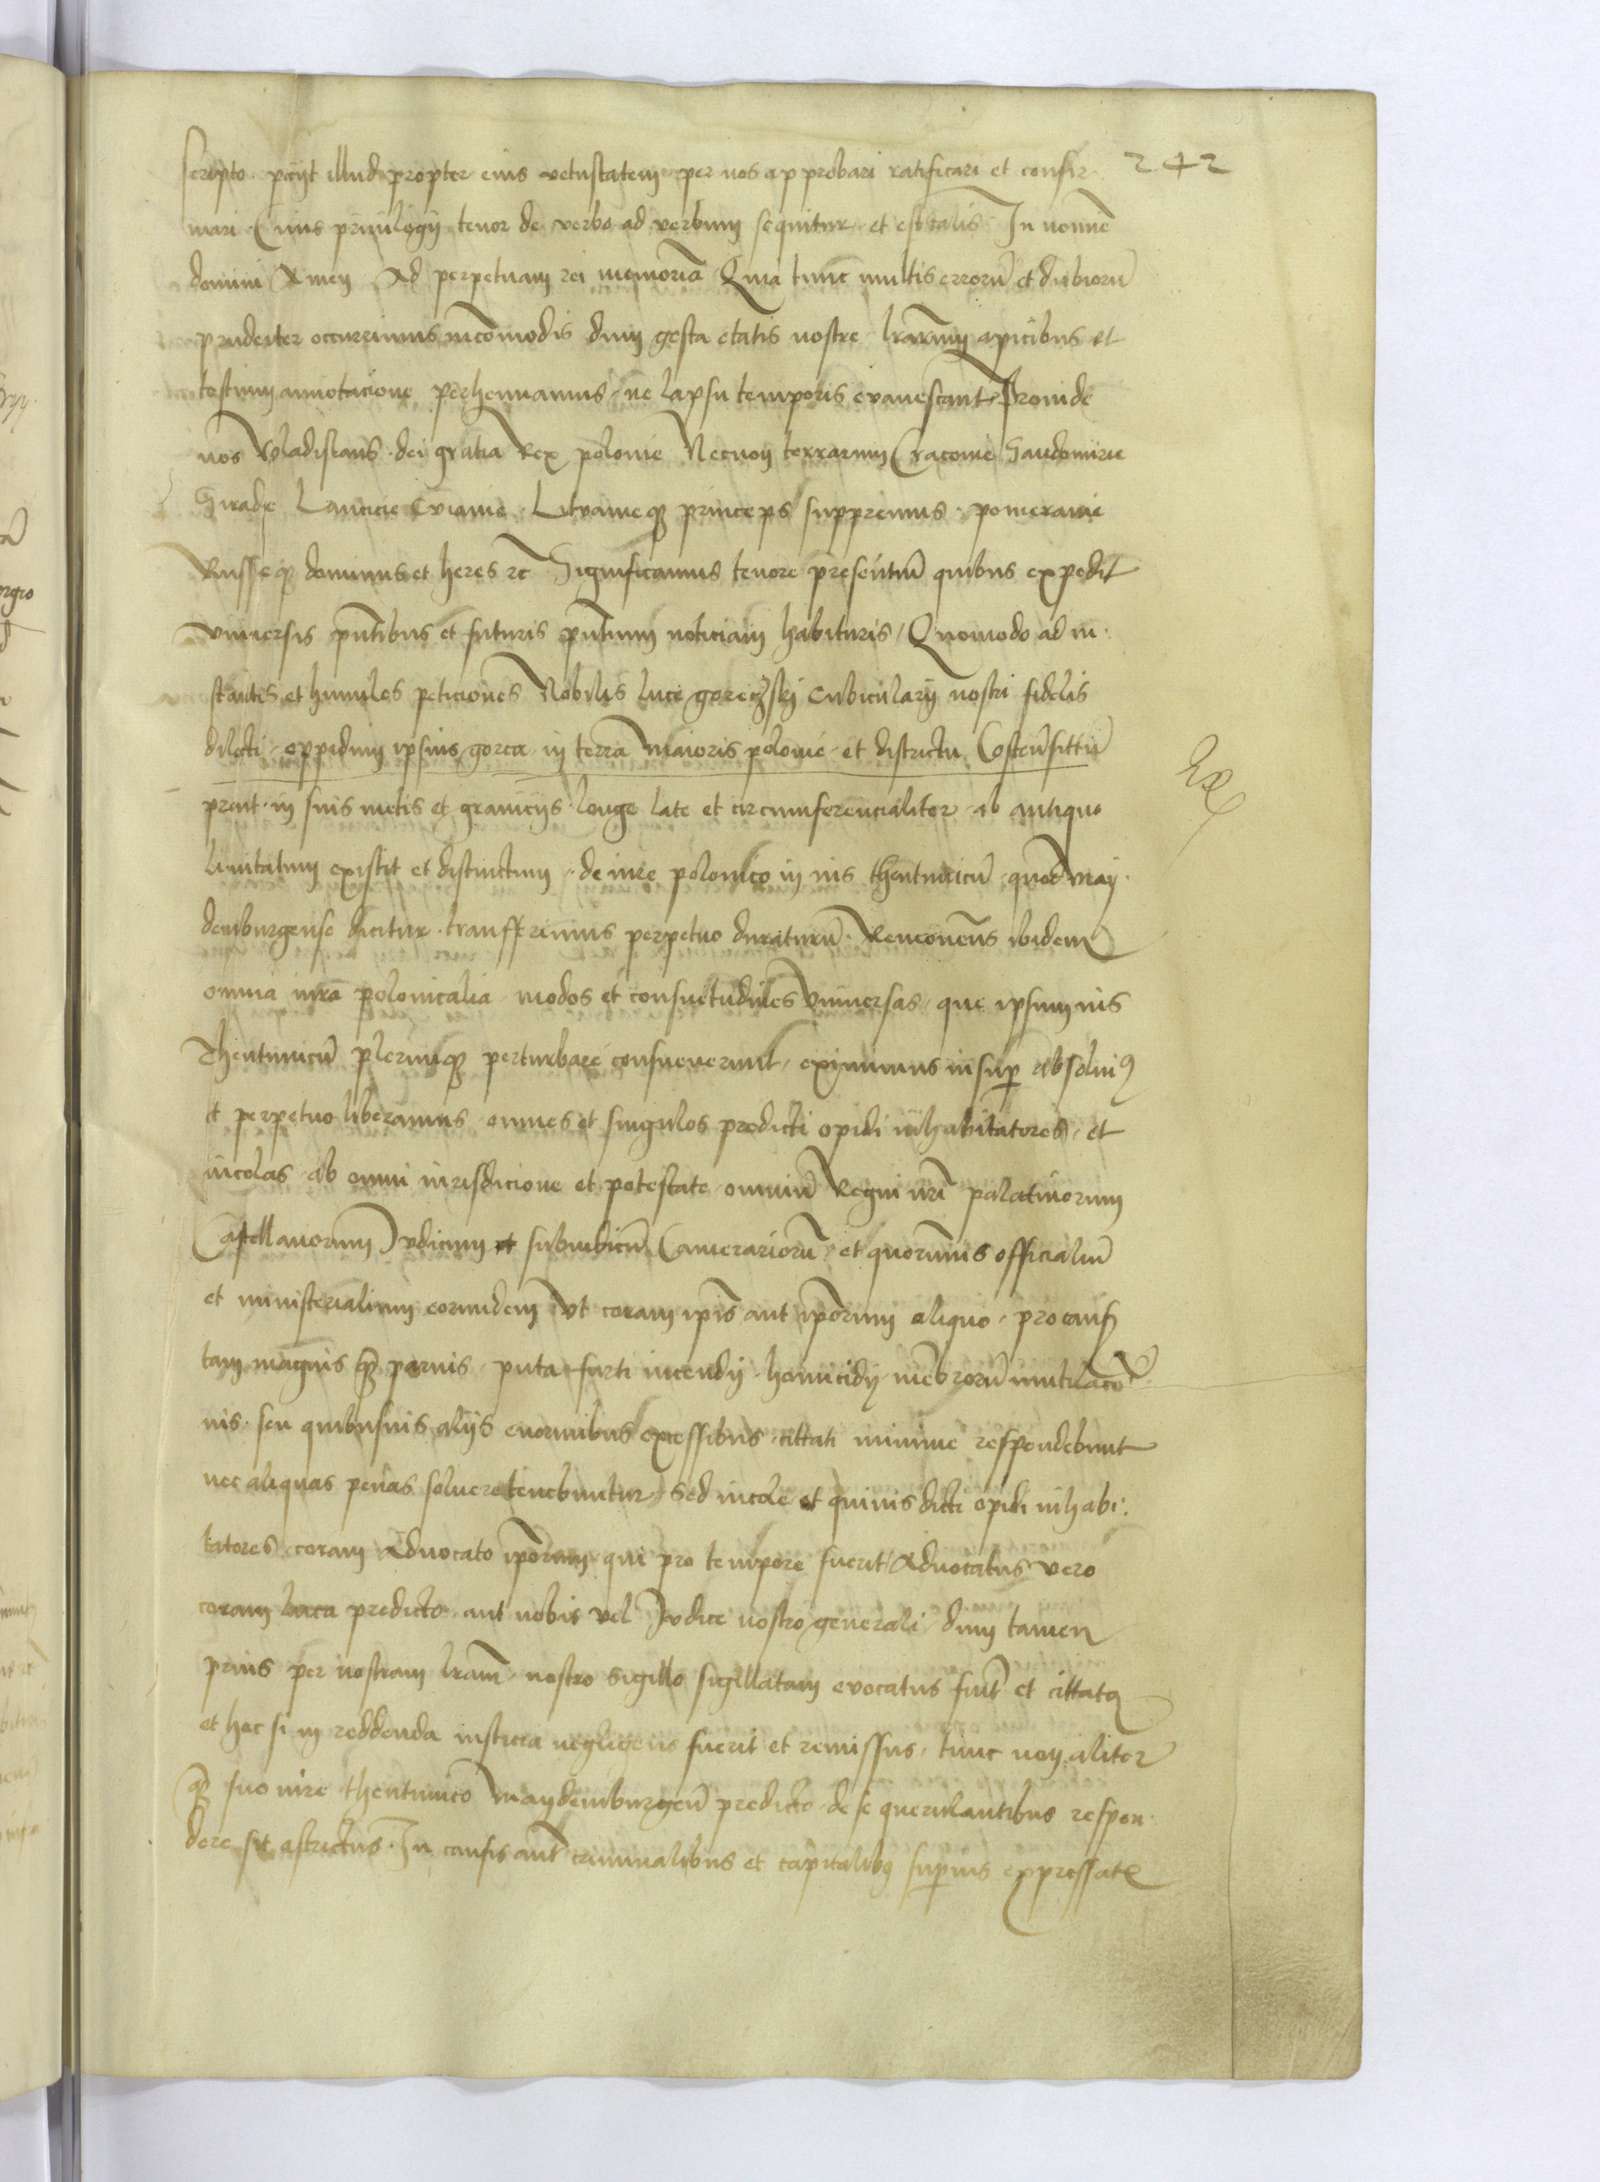 scripto peciit illud propter eius vetustatem per nos approbari ratificari et confir 242
mari Cuius priuilegij tenor de verbo ad verbum sequitur et est talis In nomine
domini Amen Ad perpetuam rei memoriā Quia tunc multis errorū et dubiorū
prudenter occurrimus incōmodis dum gesta etatis nostre lrārum apicibus et
testium annotacione perhennamus ne lapsu temporis evanescant Proinde
nos Vladislaus dei gratia Rex polonie Necnon terrarum Cracouie Sandomirie
Siradie Lancicie Cuiauie Litvanieqz princeps suppremus pomeranie
Russieqz dominus et heres etc Significamus tenore presentiū quibus expedit
vniuersis pntibus et futuris pntium noticiam habituris Quomodo ad in
stantis et humiles peticiones Nobilis luce goreczskj Cubicularij nostri fidelis
dilecti oppidum ipsius gorca in terra Maioris polonie et districtu Costen sittū
prout in suis metis et graniciis longe late et circumferencialiter ab antiquo
limitatum existit et distinctum de iure polonico in ius thentunicū quod May
demburgense dicitur transfferimus perpetuo duraturū Remouens ibidem
omnia iura polonicalia modos et consuetudines vniuersas que ipsum ius
Thentunicū plerumqz perturbare consueuerunt eximimus insup absoluim9
et perpetuo liberamus omnes et singulos predicti opidi inhabitatores et
incolas ab omni iurisdicione et potestate omniū Regni nri palatinorum
Castellanorum Judicum et subiudicū Camerariorū et quorumuis officialiū
et ministerialium eorundem Vt coram ipis aut ipōrum aliquo pro causis
tam magnis qz paruis puta furti incendij homicidij mēbrorū mutilacio
nis seu quibusuis alijs enormibus excessibus cittati minime respondebunt
nec aliquas penas soluere tenebuntur Sed incole et quiuis dicti opidi inhabi
tatores coram Aduocato ipōrum qui pro tempore fuerit Aduocatus vero
coram luca predicto aut nobis vel Judice nostro generali dum tamen
prius per nostram lram nostro sigillo sigillatam evocatus fuit et cittatus
et hec si in reddenda iusticia negligens fuerit et remissus tunc non aliter
qz suo iure thentunico Maydemburgen predicto de se querulantibus respon
dere sit astrictus In causis aut criminalibus et capitalibus superius expressatis